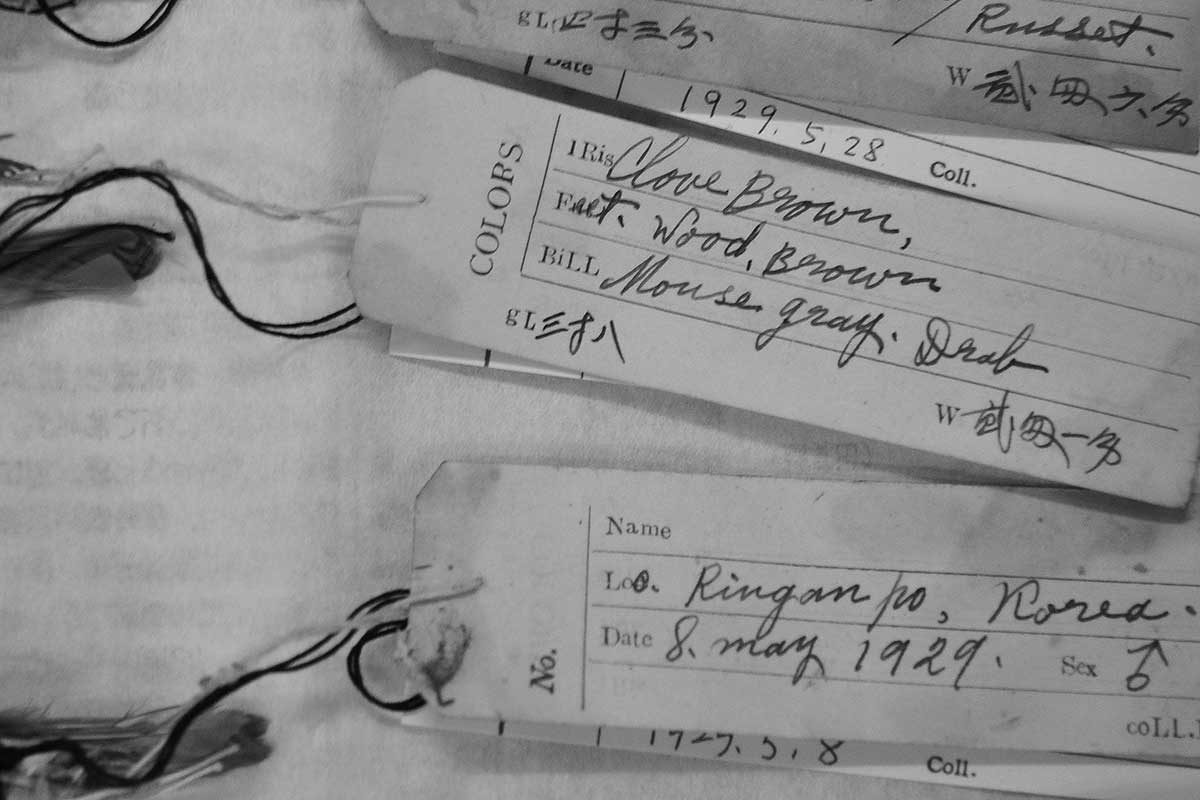 gL 四寸三分
Russet.
W 貳匁六分
Date 1929. 5, 28 Coll.
COLORS
IRis Clove Brown,
Feet. Wood, Brown
BiLL Mouse gray. Drab
gL 三寸八
W 貳匁一分
No.
Name
Loc. Ringanpo, Korea.
Date 8. may 1929. Sex ♂
coLL.
1929. 5, 8 Coll.